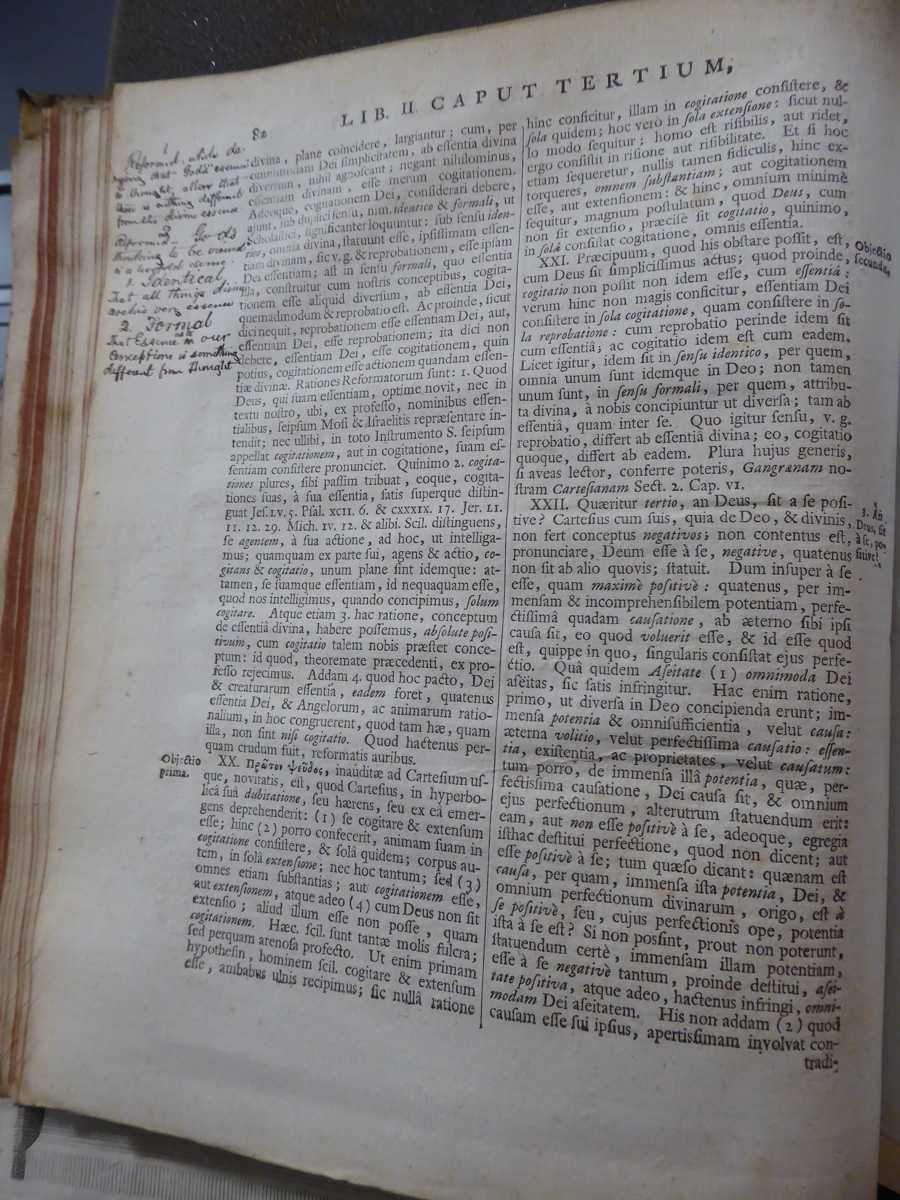 LIB. II. CAPUT TERTIUM,
82
divina, plane coincidere, largiantur; cum, per
omnimodam Dei ſimplicitatem, ab eſſentia divina
diverſum, nihil agnoſcant; negant nihilominus,
eſſentiam divinam, eſſe meram cogitationem.
Adeoque, cogitationem Dei, conſiderari debere,
ajunt, ſub duplici ſenſu, nim. identico & formali, ut
Scholaſtici, ſignificanter loquuntur: ſub ſenſu iden-
tico, omnia divina, ſtatuunt eſſe, ipſiſſimam eſſen-
tiam divinam, ſic v. g. & reprobationem, eſſe ipſam
Dei eſſentiam; aſt in ſenſu formali, quo eſſentia
illa, conſtruitur cum noſtris conceptibus, cogita-
tionem eſſe aliquid diverſum, ab eſſentia Dei,
quemadmodum & reprobatio eſt. Ac proinde, ſicut
dici nequit, reprobationem eſſe eſſentiam Dei, aut,
eſſentiam Dei, eſſe reprobationem; ita dici non
debere, eſſentiam Dei, eſſe cogitationem, quin
potius, cogitationem eſſe actionem quandam eſſen-
tiæ divinæ. Rationes Reformatorum ſunt: 1. Quod
Deus, qui ſuam eſſentiam, optime novit, nec in
textu noſtro, ubi, ex profeſſo, nominibus eſſen-
tialibus, ſeipſum Moſi & Iſraelitis repræſentare in-
tendit; nec ullibi, in toto Inſtrumento S. ſeipſum
appellat cogitationem, aut in cogitatione, ſuam eſ-
ſentiam conſiſtere pronunciet. Quinimo 2. cogita-
tiones plures, ſibi paſſim tribuat, eoque, cogita-
tiones ſuas, à ſua eſſentia, ſatis ſuperque diſtin-
guat Jeſ. LV. 5. Pſal. XCII. 6. & CXXXIX. 17. Jer. LI.
11. 12. 29. Mich. IV. 12. & alibi. Scil. diſtinguens,
ſe agentem, à ſua actione, ad hoc, ut intelliga-
mus; quamquam ex parte ſui, agens & actio, co-
gitans & cogitatio, unum plane ſint idemque: at-
tamen, ſe ſuamque eſſentiam, id nequaquam eſſe,
quod nos intelligimus, quando concipimus, ſolum
cogitare. Atque etiam 3. hac ratione, conceptum
de eſſentiâ divina, habere poſſemus, abſolute poſi-
tivum, cum cogitatio talem nobis præſtet conce-
ptum: id quod, theoremate præcedenti, ex pro-
feſſo rejecimus. Addam 4. quod hoc pacto, Dei
& creaturarum eſſentia, eadem foret, quatenus
eſſentia Dei, & Angelorum, ac animarum ratio-
nalium, in hoc congruerent, quod tam hæ, quam
illa, non ſint niſi cogitatio. Quod hactenus per-
quam crudum fuit, reformatis auribus.
XX. Πρῶτον ψεῦδος, inauditæ ad Carteſium uſ-
que, novitatis, eſt, quod Carteſius, in hyperbo-
licâ ſuâ dubitatione, ſeu hærens, ſeu ex eâ emer-
gens deprehenderit: (1) ſe cogitare & extenſum
eſſe; hinc (2) porro confecerit, animam ſuam in
cogitatione conſiſtere, & ſolâ quidem; corpus au-
tem, in ſolâ extenſione; nec hoc tantum; ſed (3)
omnes etiam ſubſtantias; aut cogitationem eſſe,
aut extenſionem, atque adeo (4) cum Deus non ſit
extenſio; aliud illum eſſe non poſſe, quam
cogitationem. Hæc. ſcil. ſunt tantæ molis fulcra;
ſed perquam arenoſa profecto. Ut enim primam
hypotheſin, hominem ſcil. cogitare & extenſum
eſſe, ambabus ulnis recipimus; ſic nullâ ratione
hinc conficitur, illam in cogitatione conſiſtere, &
ſola quidem; hoc vero in ſola extenſione: ſicut nul-
lo modo ſequitur; homo eſt riſibilis, aut ridet,
ergo conſiſtit in riſione aut riſibilitate. Et ſi hoc
etiam ſequeretur, nullis tamen fidiculis, hinc ex-
torqueres, omnem ſubſtantiam; aut cogitationem
eſſe, aut extenſionem: & hinc, omnium minimè
ſequitur, magnum poſtulatum, quod Deus, cum
non ſit extenſio, præciſe ſit cogitatio, quinimo,
in ſolâ conſiſtat cogitatione, omnis eſſentia.
XXI. Præcipuum, quod his obſtare poſſit, eſt,
cum Deus ſit ſimpliciſſimus actus; quod proinde,
cogitatio non poſſit non idem eſſe, cum eſſentiâ:
verum hinc non magis conficitur, eſſentiam Dei
conſiſtere in ſola cogitatione, quam conſiſtere in ſo-
la reprobatione: cum reprobatio perinde idem ſit
cum eſſentiâ; ac cogitatio idem eſt cum eadem.
Licet igitur, idem ſit in ſenſu identico, per quem,
omnia unum ſunt idemque in Deo; non tamen
unum ſunt, in ſenſu formali, per quem, attribu-
ta divina, à nobis concipiuntur ut diverſa; tam ab
eſſentiâ, quam inter ſe. Quo igitur ſenſu, v. g.
reprobatio, differt ab eſſentiâ divina; eo, cogitatio
quoque, differt ab eadem. Plura hujus generis,
ſi aveas lector, conferre poteris, Gangrænam no-
ſtram Carteſianam Sect. 2. Cap. VI.
XXII. Quæritur tertio, an Deus, ſit a ſe poſi-
tive? Carteſius cum ſuis, quia de Deo, & divinis,
non fert conceptus negativos; non contentus eſt,
pronunciare, Deum eſſe à ſe, negative, quatenus
non ſit ab alio quovis; ſtatuit. Dum inſuper à ſe
eſſe, quam maximè poſitivè: quatenus, per im-
menſam & incomprehenſibilem potentiam, perfe-
ctiſſimâ quadam cauſatione, ab æterno ſibi ipſi
cauſa ſit, eo quod voluerit eſſe, & id eſſe quod
eſt, quippe in quo, ſingularis conſiſtat ejus perfe-
ctio. Quâ quidem Aſeitate (1) omnimoda Dei
aſeitas, ſic ſatis infringitur. Hac enim ratione,
primo, ut diverſa in Deo concipienda erunt; im-
menſa potentia & omniſufficientia, velut cauſa:
æterna volitio, velut perfectiſſima cauſatio: eſſen-
tia, exiſtentia, ac proprietates, velut cauſatum:
tum porro, de immenſa illâ potentia, quæ, per-
fectiſſima cauſatione, Dei cauſa ſit, & omnium
ejus perfectionum, alterutrum ſtatuendum erit:
eam, aut non eſſe poſitivè à ſe, adeoque, egregia
iſthac deſtitui perfectione, quod non dicent; aut
eſſe poſitivè à ſe; tum quæſo dicant: quænam eſt
cauſa, per quam, immenſa iſta potentia, Dei, &
omnium perfectionum divinarum, origo, eſt à
ſe poſitivè, ſeu, cujus perfectionis ope, potentia
iſta à ſe eſt? Si non poſſint, prout non poterunt,
ſtatuendum certè, immenſam illam potentiam,
eſſe à ſe negativè tantum, proinde deſtitui, aſei-
tate poſitiva, atque adeo, hactenus infringi, omni-
modam Dei aſeitatem. His non addam (2) quod
cauſam eſſe ſui ipſius, apertiſſimam involvat con-
tradi-
Objectio
prima.
Objectio
ſecunda.
3. An
Deus, ſit
à ſe, po-
ſitive?
1
Reformd. while de-
nying that God's essence
is thought, allow that
there is nothing different
from the divine essence
2. God's
thinking to be
in a twofold sense.
1. Identical
That all things divine
are his very essence
2. Formal
That Essence in our
conception is something
different from thought